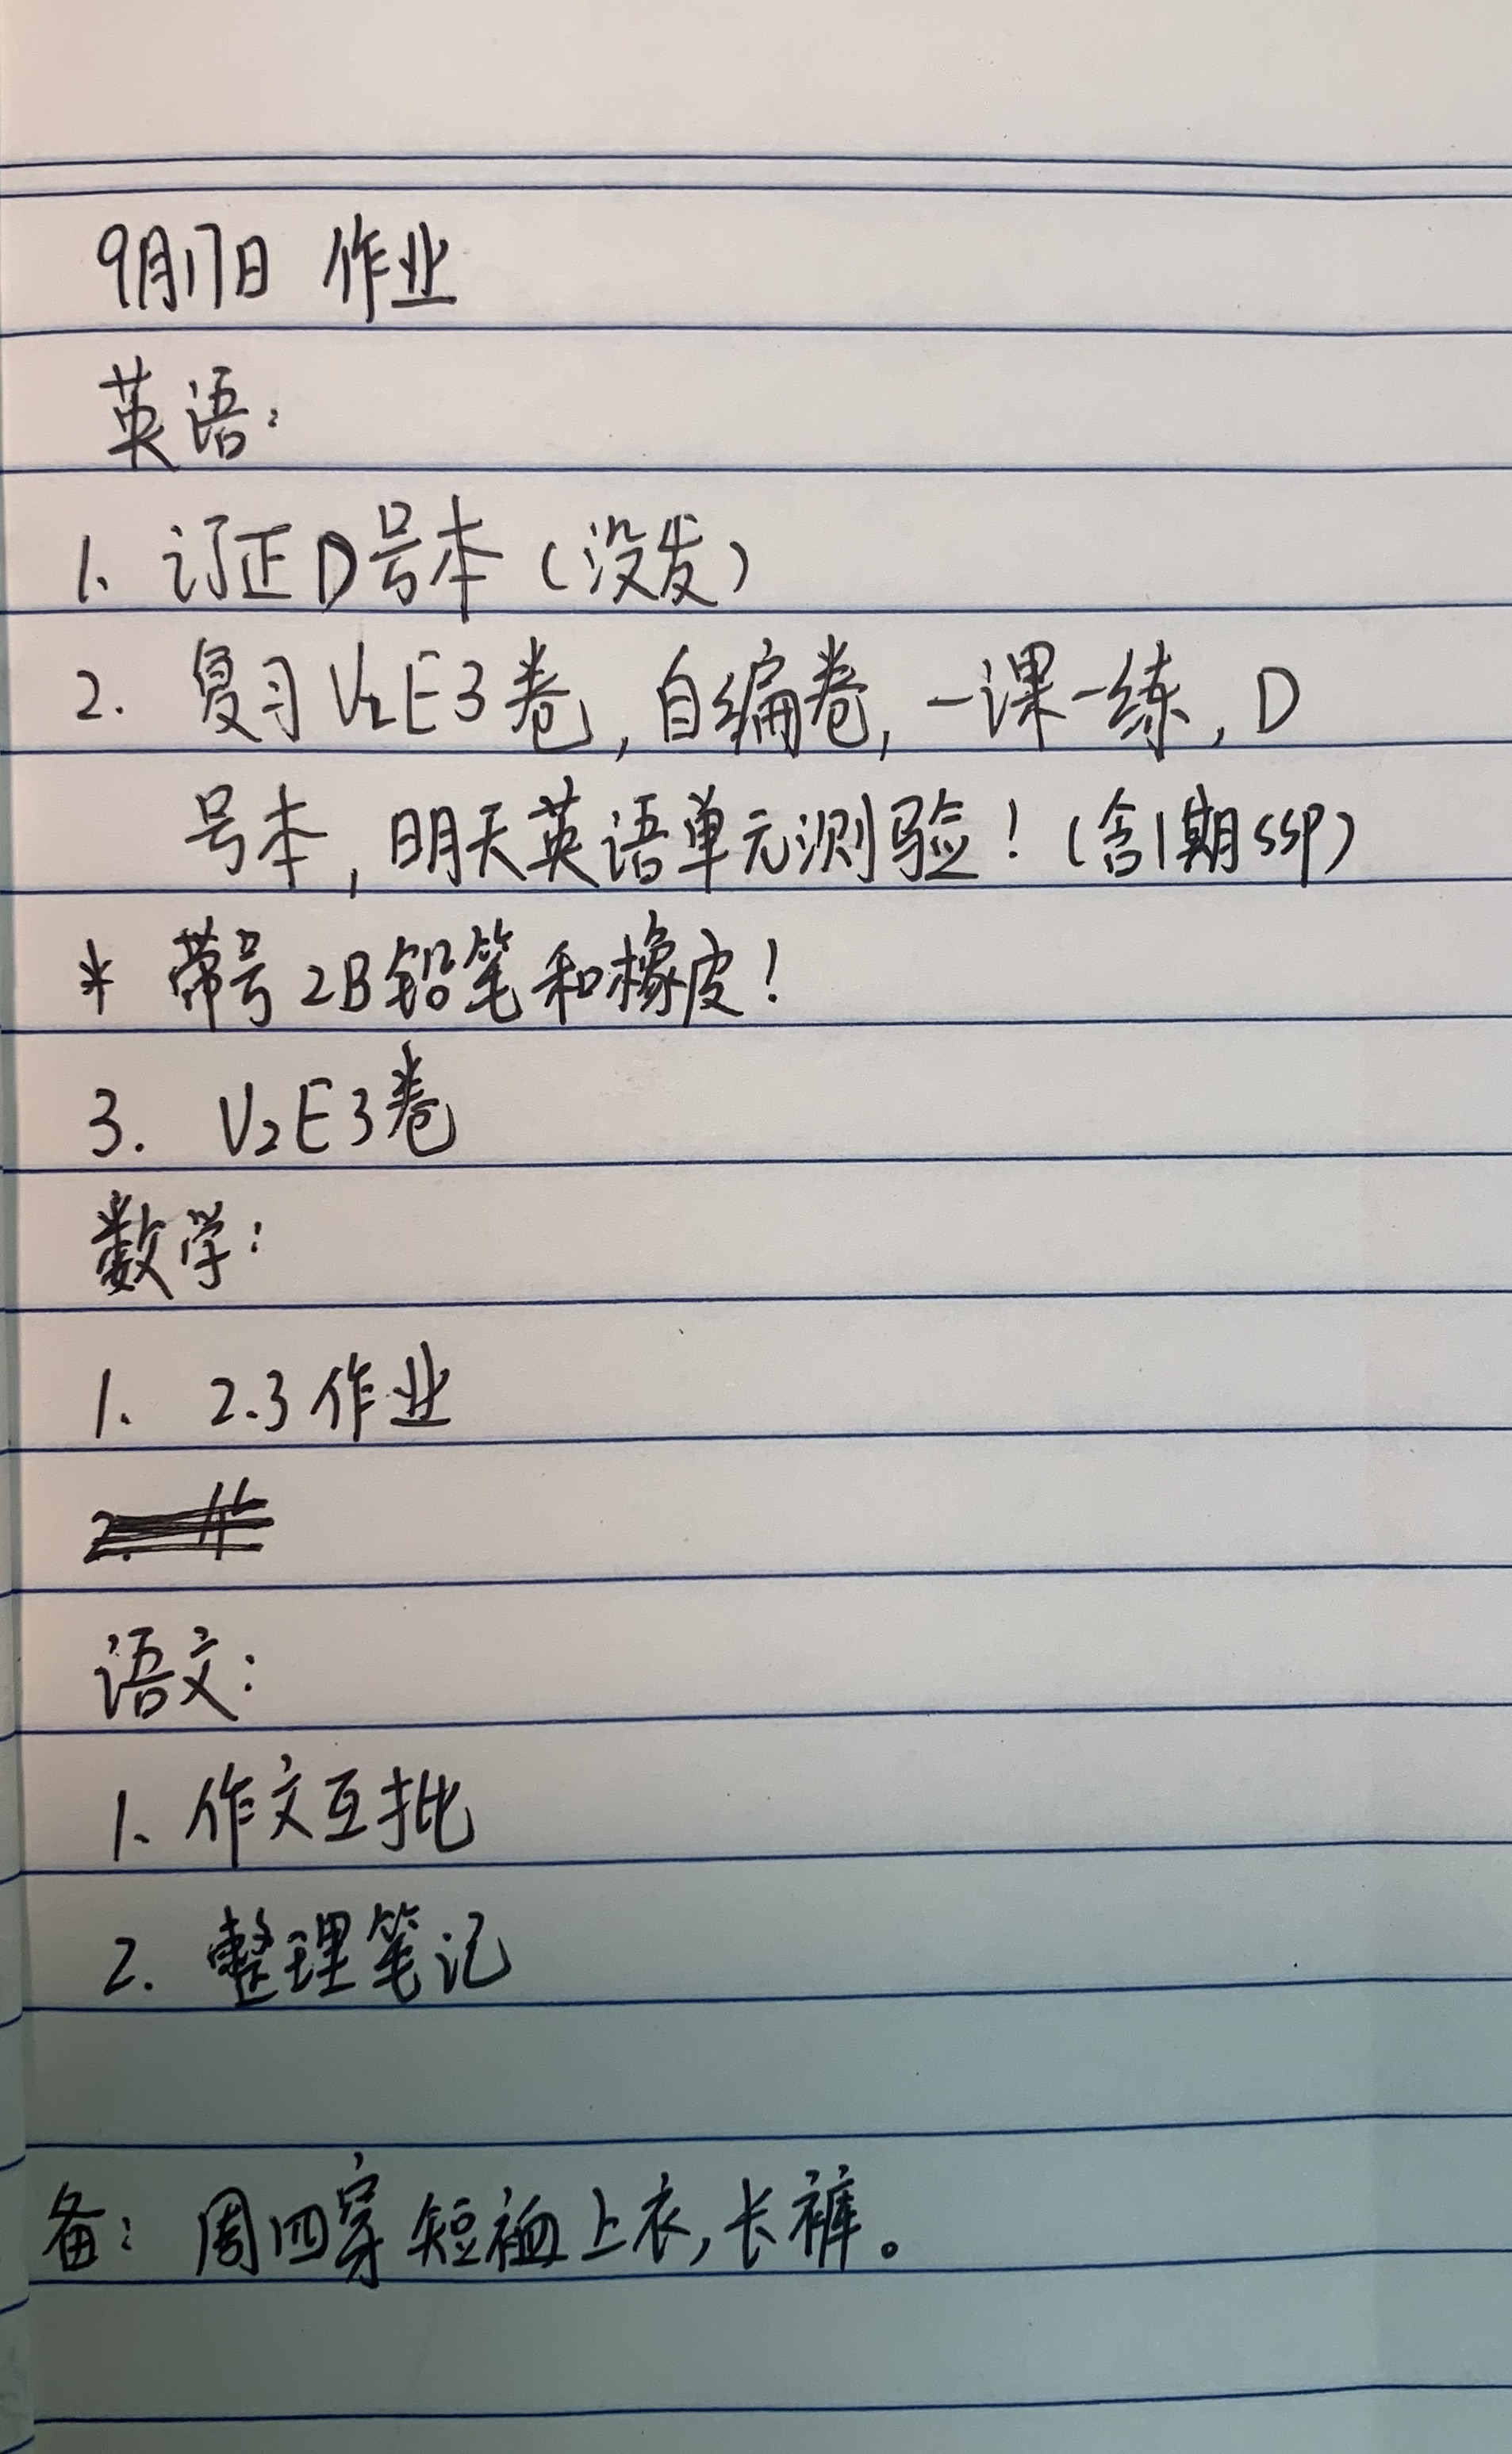 9月17日 作业
英语:
1、订正D号本（没发）
2. 复习V2E3卷,自编卷,一课一练,D
号本,明天英语单元测验!（含1期SSP）
* 带号2B铅笔和橡皮!
3. V2E3卷
数学:
1、2.3作业
语文:
1、作文互批
2. 整理笔记
备: 周四穿短袖上衣,长裤。